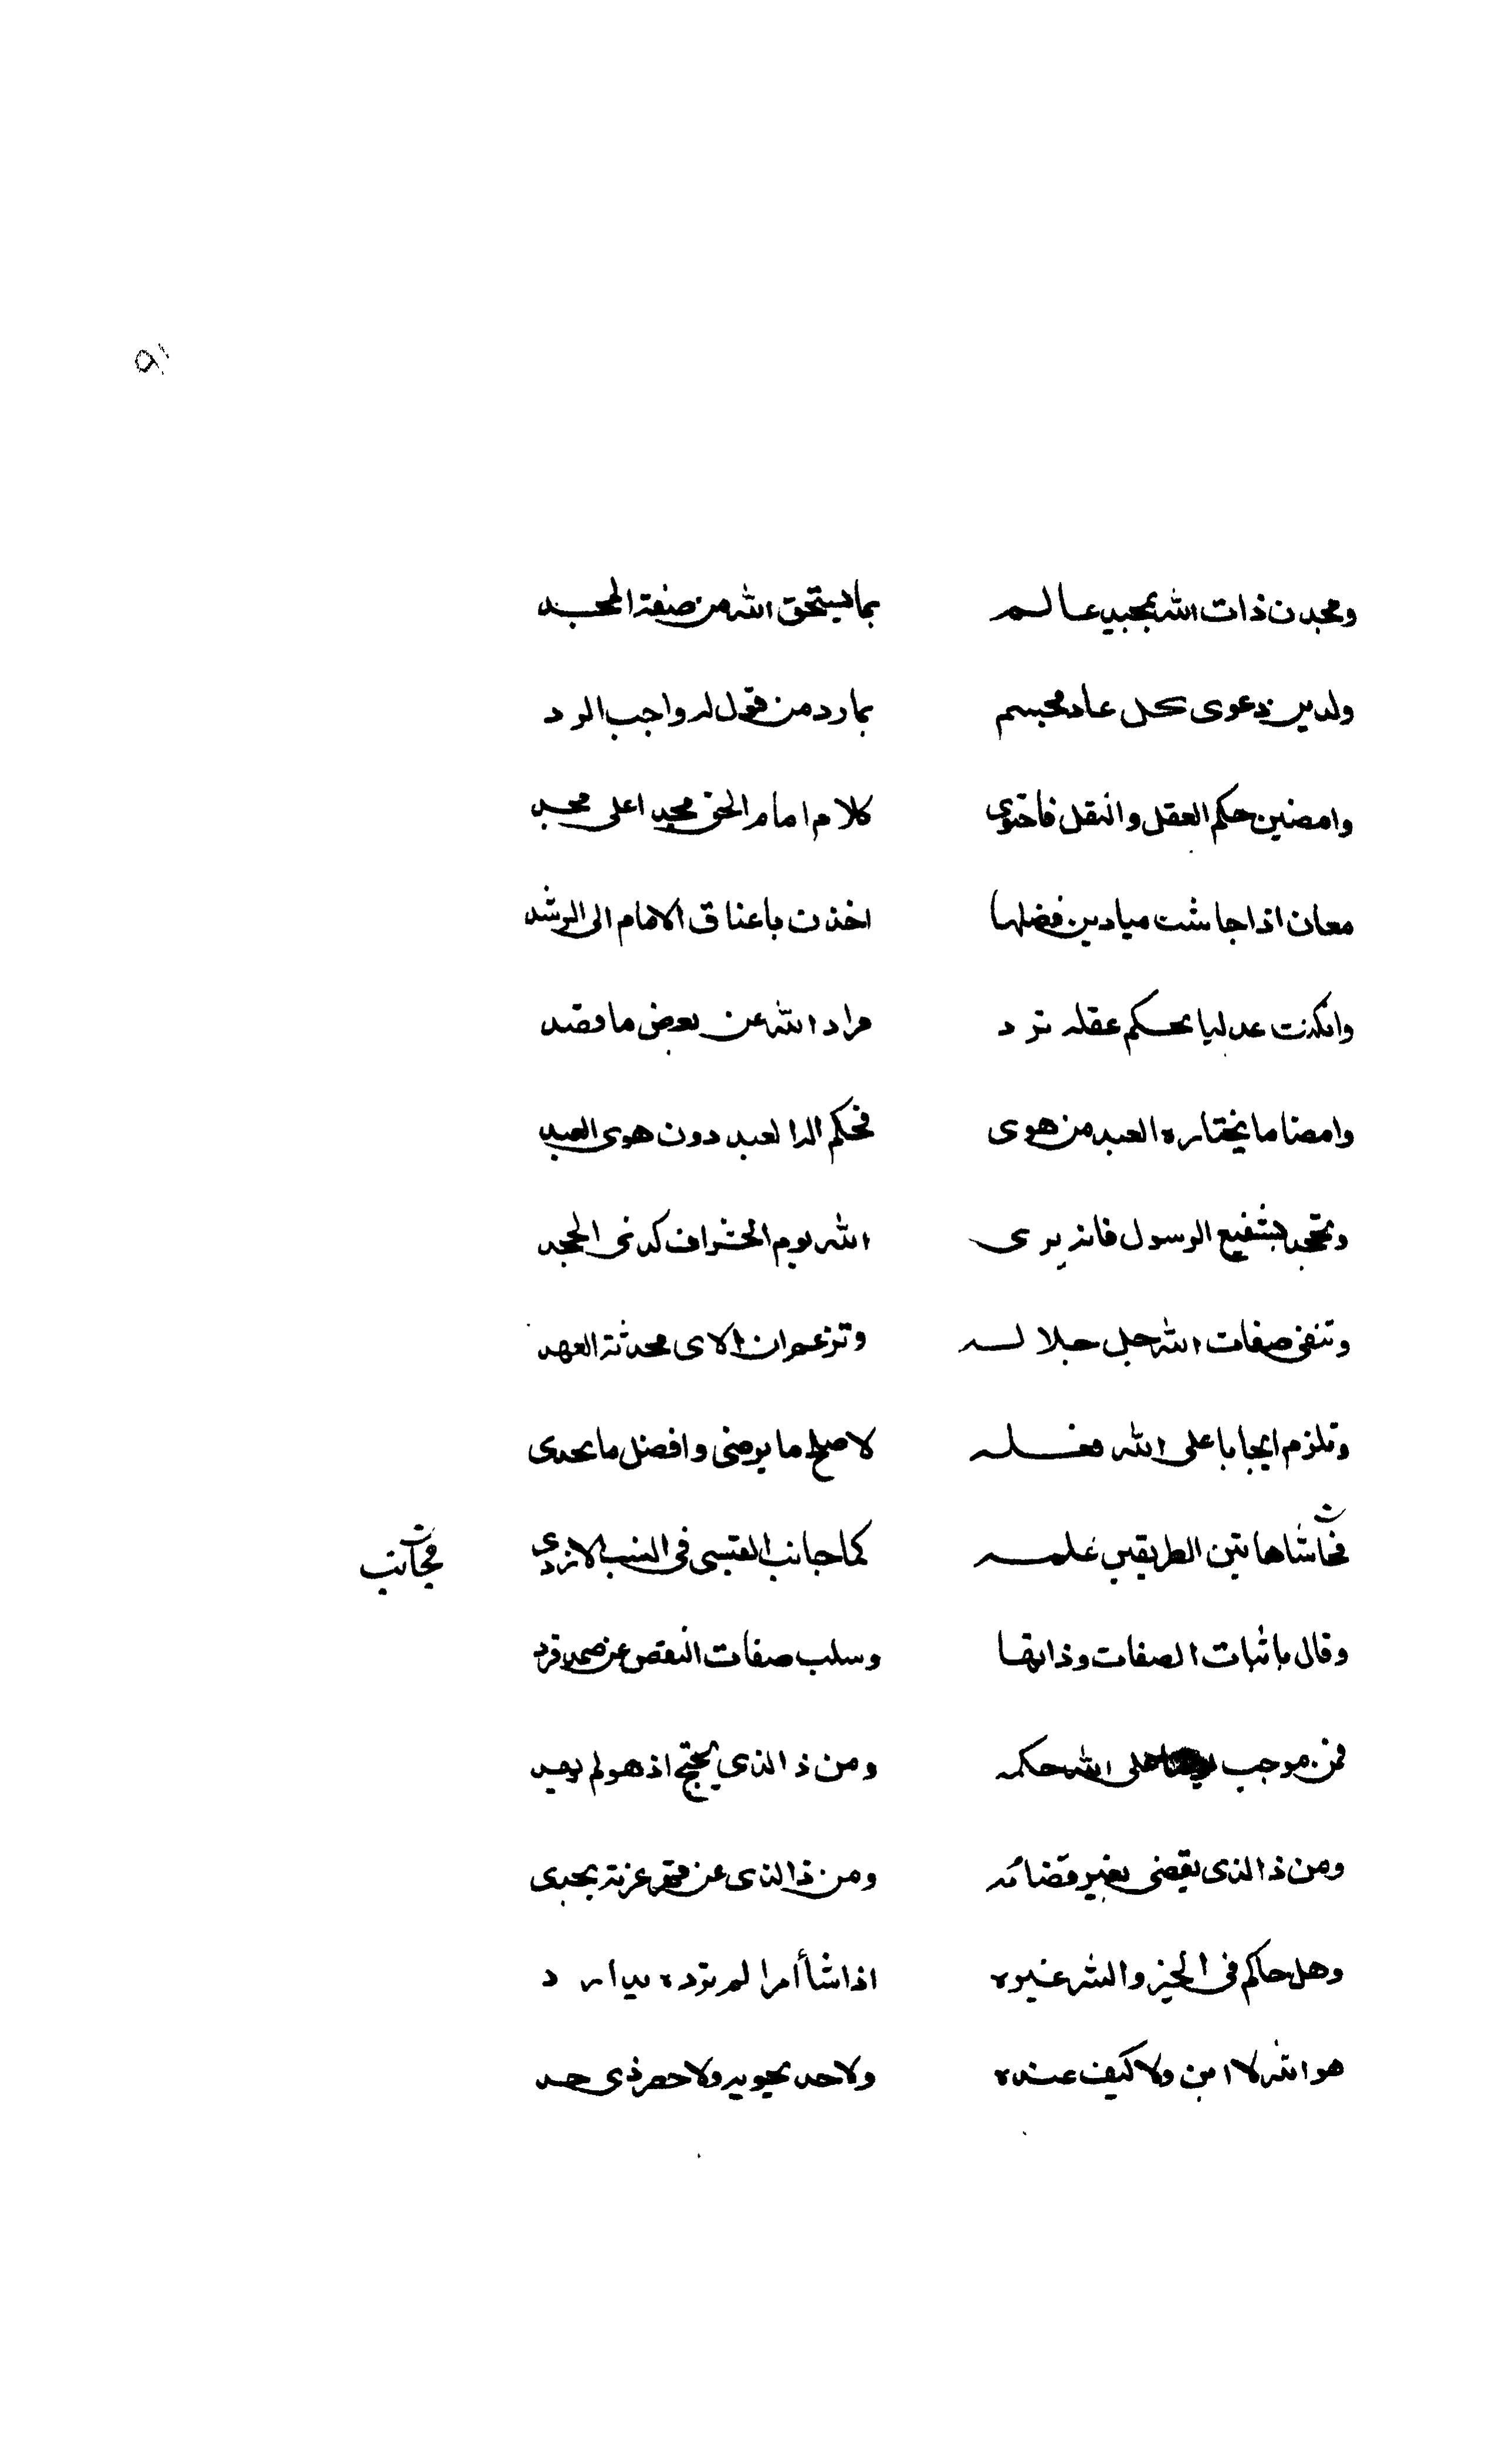 ومجدن ذات الله تمجيد عالم بما يستحق الله من صفة المجد
ولدين دعوى كل عاد مجسم بما رد من قول له واجب الرد
وامضين حكم العقل والنقل فاحتوى كلام امام الحق مجد اعلى مجد
معان اذا جاشت ميادين فضلها اخذن باعناق الانام الى الرشد
وانكرت عدليا بحكم عقله ترد مراد الله عن بعض ما قصد
وامضا ما يختاره العبد من هوى فحكم اله العبد دون هوى العبد
وتجحد تشفيع الرسول فانه يرى الله يوم الحشر افك ذي الجحد
وتنفي صفات الله جل جلاله وتزعم ان الاى محدثة العهد
وتلزم ايجابا على الله فعله لاصلح ما يرضى وافضل ما يجدى
فحاشا هاتين الطريقين علمه كما جانب القيسى في النسب الازدى
فجانب
وقال باثبات الصفات وذاتها وسلب صفات النقص عن صمد فرد
فمن موجب على الله حكمه ومن ذا الذي يحتج اذ هو لم يهد
ومن ذا الذى يقضى بغير قضائه ومن ذا الذى عن قهر عزته يحدى
وهل حاكم فى الخير والشر غيره اذا شأ أمرا لم نرده بيد ارد
هو الله لا اين ولا كيف عنده ولا حد يحويه ولا حصر ذى حد